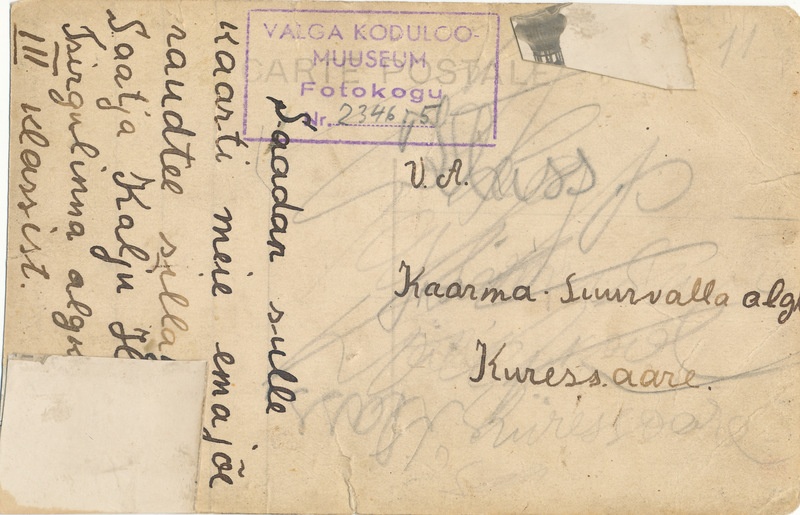 VALGA KODULOO-
MUUSEUM
Fotokogu
Nr. 2346:5
CARTE POSTALE
11
Saadan sulle
kaarti meie emajõe
raudtee silla
Saatja Kalju
Tsirgulinna algk
III klassist.
V. A.
Kaarma-Suurvalla alg
Kuressaare.